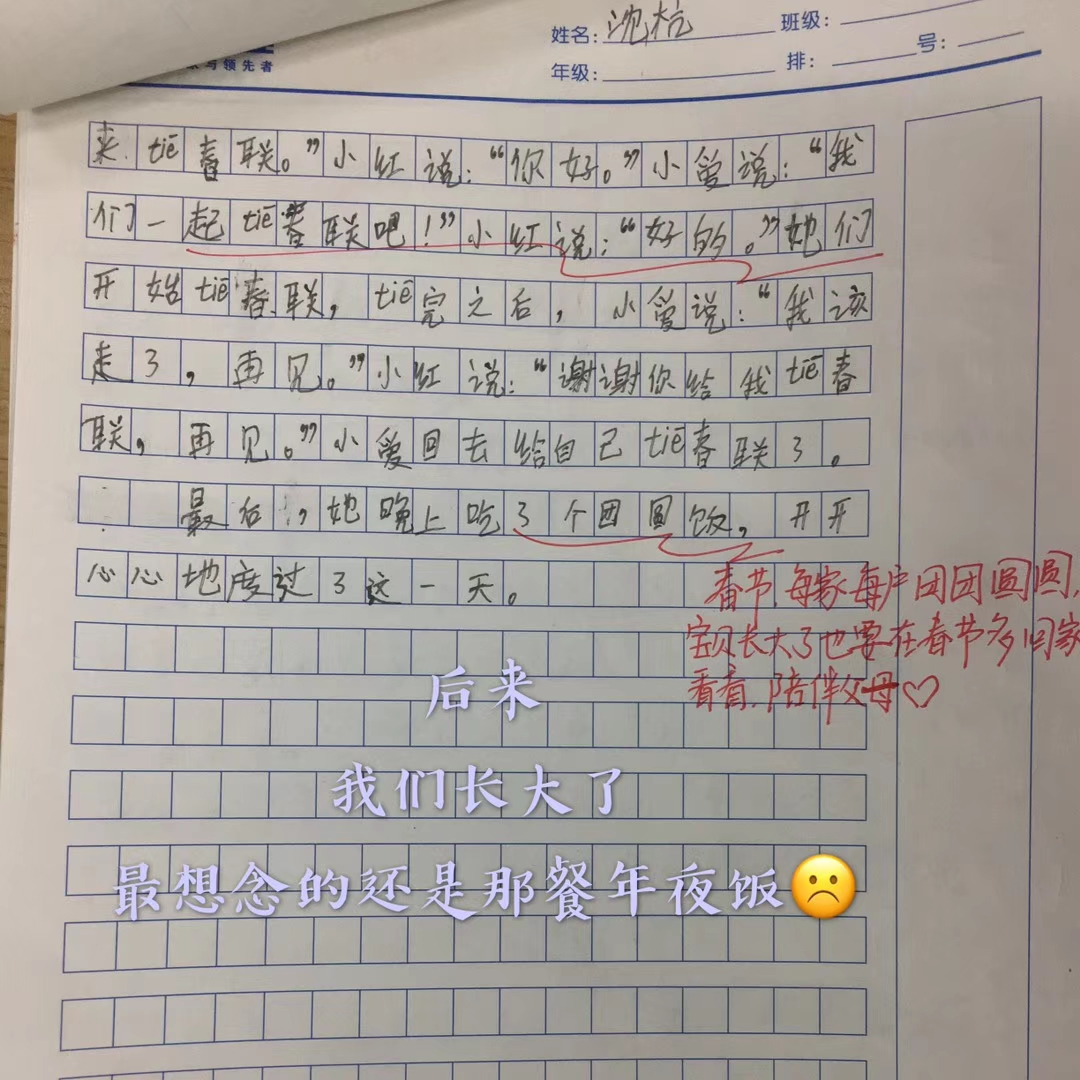 姓名:沈杭 班级:
与领先者
年级: 排: 号:
来tiē春联。”小红说:“你好。”小爱说:“我
们一起tiē春联吧!”小红说:“好的。”她们
开始tiē春联,tiē完之后,小爱说:“我该
走了,再见。”小红说:“谢谢你给我tiē春
联,再见。”小爱回去给自己tiē春联了。
最后,她晚上吃了个团圆饭,开开
心心地度过了这一天。
春节,每家每户团团圆圆,
宝贝长大了也要在春节多回家
看看,陪伴父母♡
后来
我们长大了
最想念的还是那餐年夜饭☹️